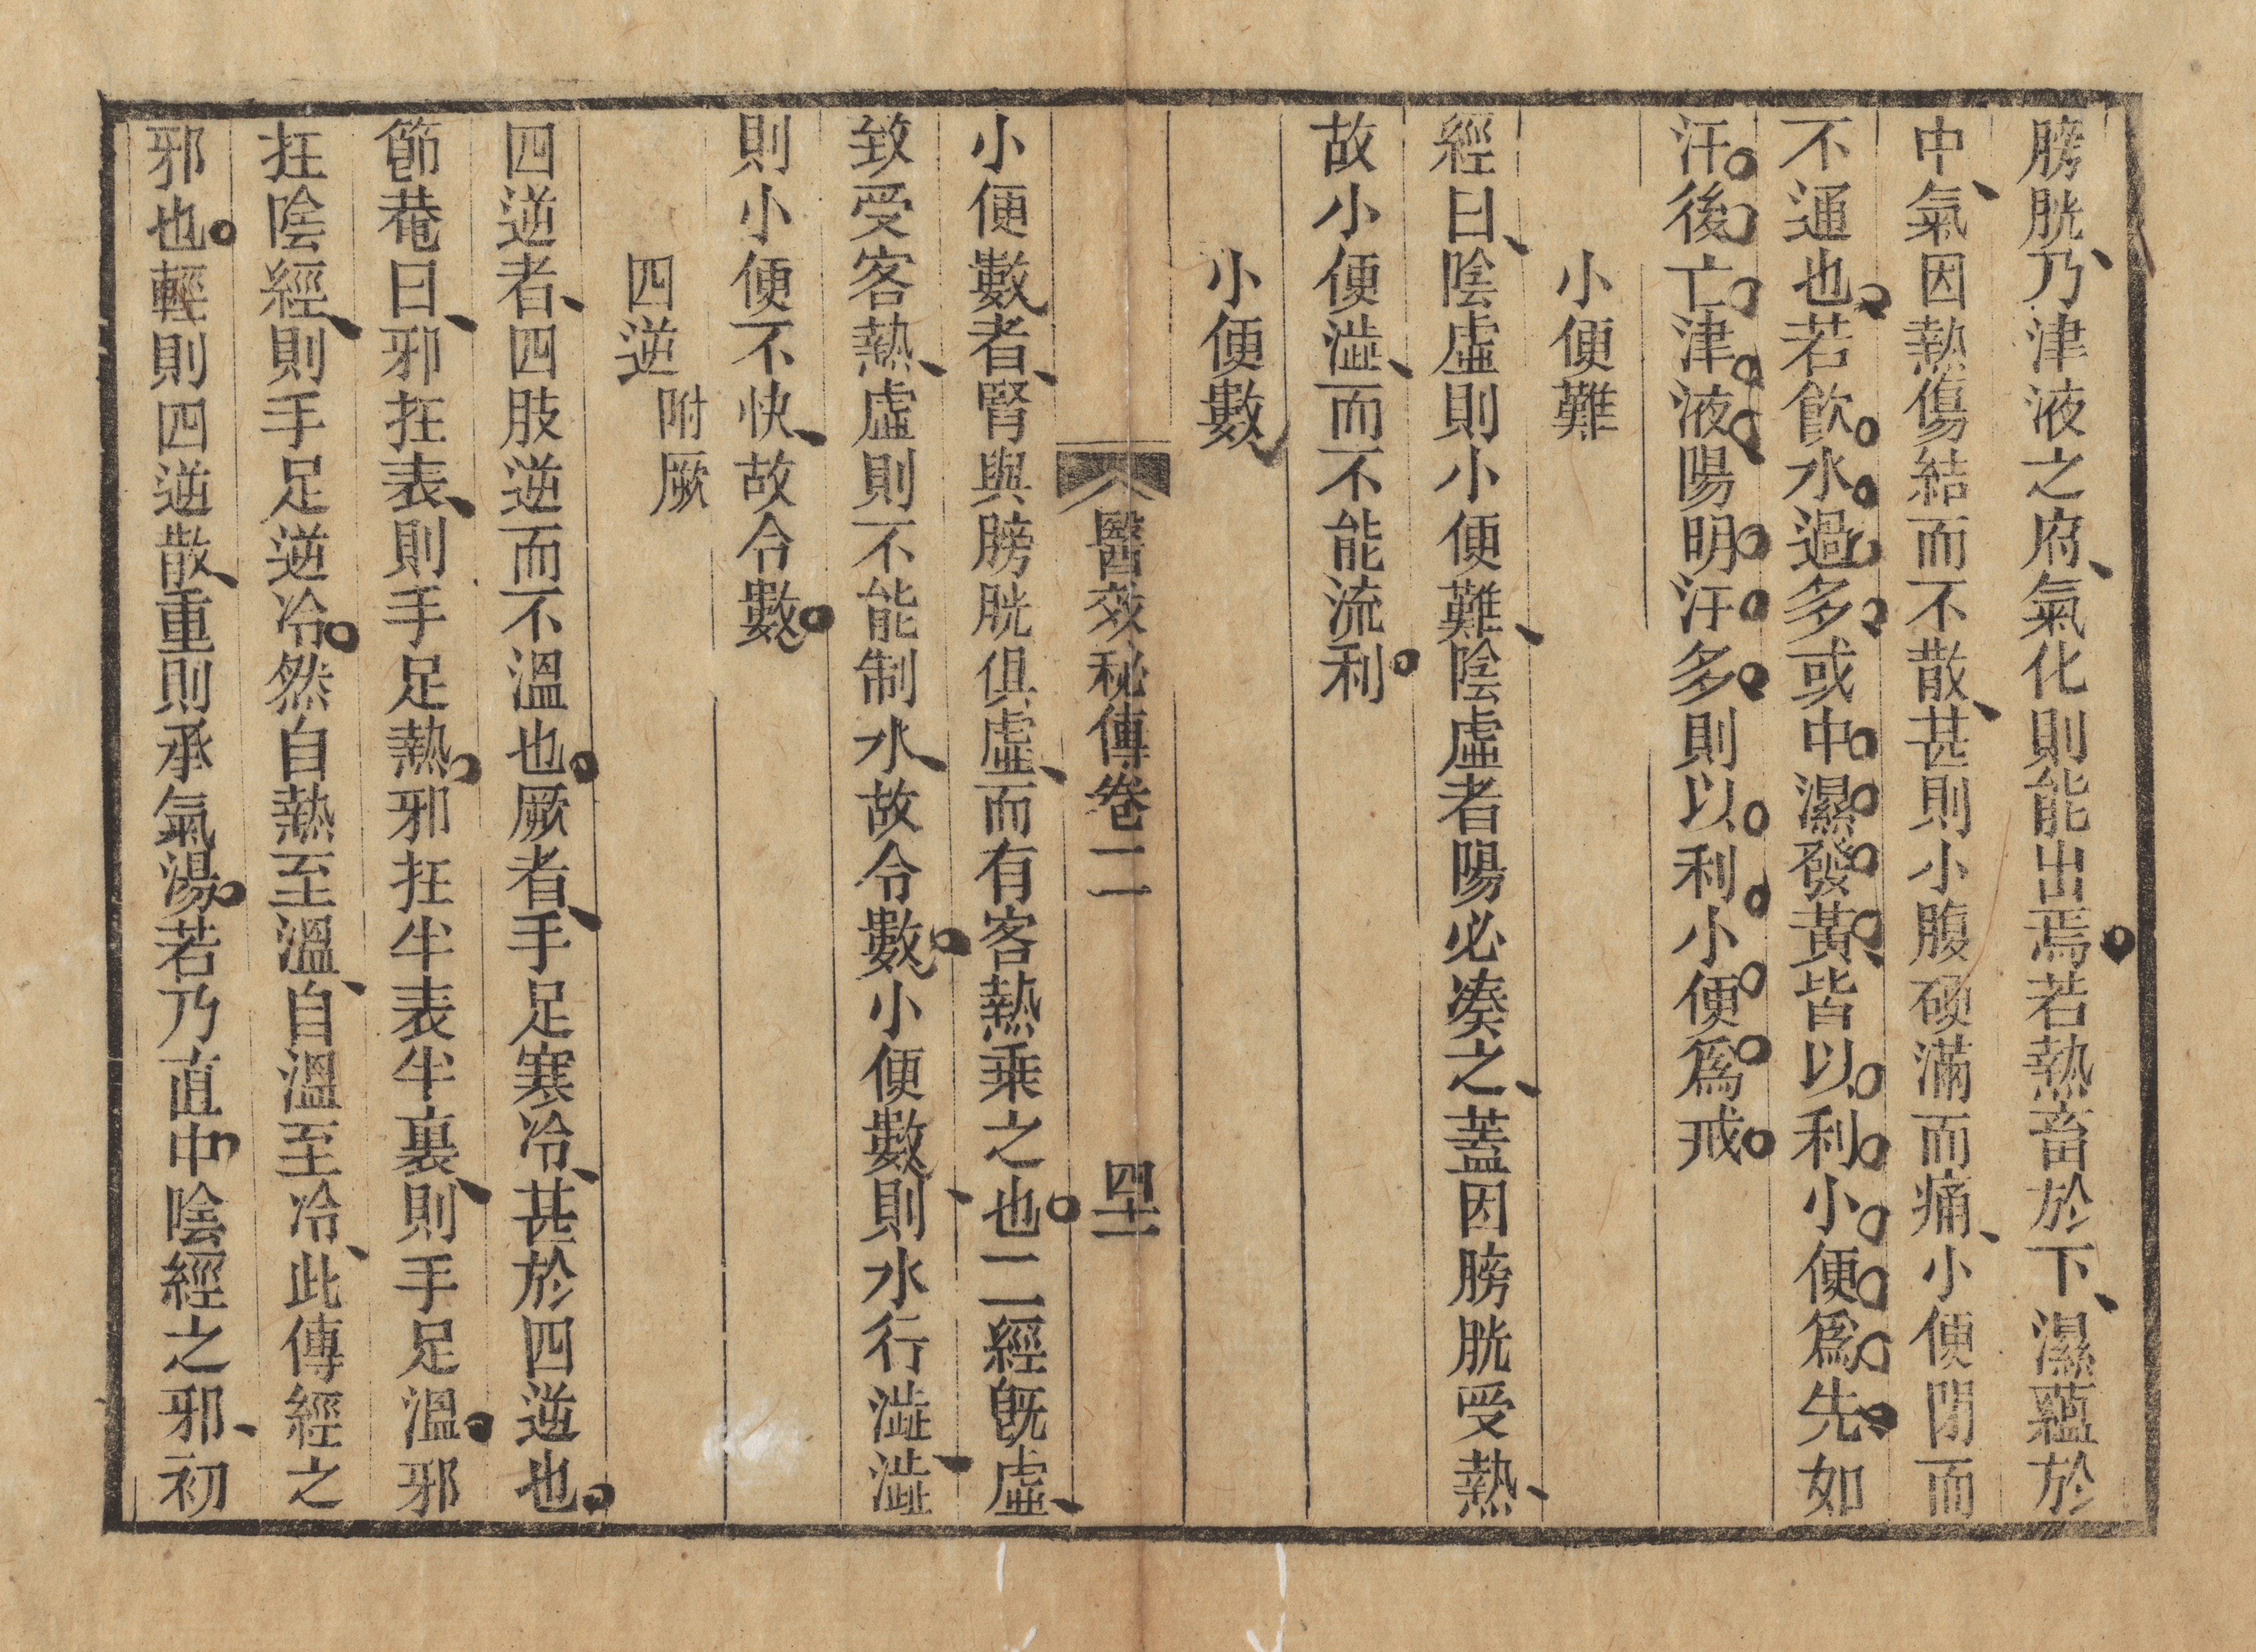 膀胱、乃津液之府、氣化則能出焉。若熱畜於下、濕蘊於
中、氣因熱傷結而不散、甚則小腹硬滿而痛、小便閉而
不通也。若飲水過多或中濕發黃、皆以利小便為先。如
汗後亡津液、陽明汗多則以利小便為戒。
小便難
經曰、陰虛則小便難、陰虛者陽必湊之、蓋因膀胱受熱、
故小便澁、而不能流利。
小便數
醫效秘傳卷二
四十二
小便數者、腎與膀胱俱虛、而有客熱乘之也。二經旣虛、
致受客熱、虛則不能制水、故令數。小便數、則水行澁、澁
則小便不快、故令數。
四逆 附厥
四逆者、四肢逆而不溫也。厥者、手足寒冷、甚於四逆也。
節菴曰、邪在表、則手足熱。邪在半表半裏、則手足溫。邪
在陰經、則手足逆冷。然自熱至溫、自溫至冷、此傳經之
邪也。輕則四逆散、重則承氣湯。若乃直中陰經之邪、初